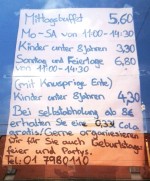 Mittagsbuffet 5,60
Mo-SA von 11:00-14:30
Kinder unter 8Jahren 3,30
Sonntag und Feiertage 6,80
von 11:00-14:30
(mit Knusprige Ente)
Kinder unter 8Jahren 4,30
Bei selbstabholung ab 8€
erhalten Sie eine 0,33l Cola
gratis! Gerne organisieren
wir für Sie auch Geburtstags
feier und Partys.
Tel: 01 7980110